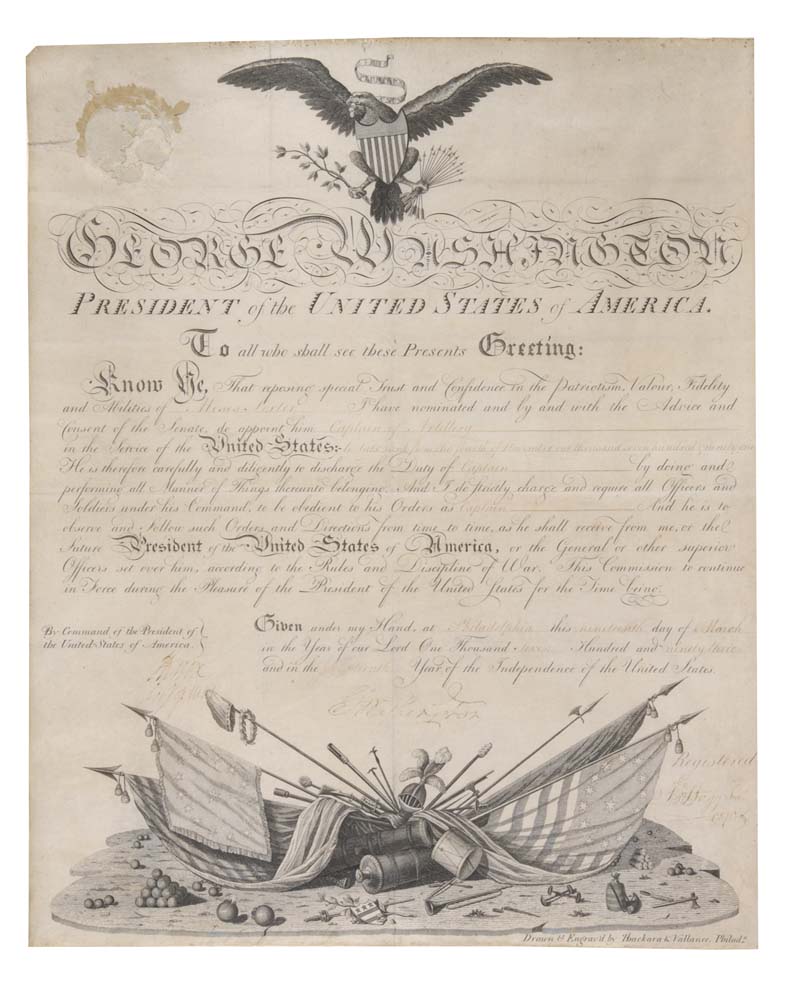 GEORGE WASHINGTON
PRESIDENT of the UNITED STATES of AMERICA.
To all who shall see these Presents Greeting:
Know Ye, That reposing special Trust and Confidence in the Patriotism, Valour, Fidelity
and Abilities of I have nominated and by and with the Advice and
Consent of the Senate, do appoint him Captain of Artillery
in the Service of the United States:
He is therefore carefully and diligently to discharge the Duty of Captain by doing and
performing all Manner of Things thereunto belonging. And I do strictly charge and require all Officers and
Soldiers under his Command, to be obedient to his Orders as Captain And he is to
observe and follow such Orders and Directions from time to time, as he shall receive from me, or the
future President of the United States of America, or the General or other superior
Officers set over him, according to the Rules and Discipline of War. This Commission to continue
in Force during the Pleasure of the President of the United States for the Time being.
By Command of the President of
the United States of America.
Given under my Hand, at Philadelphia this nineteenth day of March
in the Year of our Lord One Thousand seven Hundred and ninety
and in the Year of the Independence of the United States.
G Washington
Registered
Drawn & Engrav'd by Thackara & Vallance. Philada.